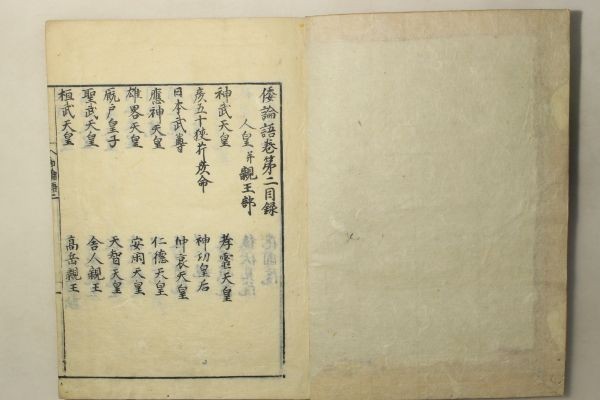 倭論語巻第二目録
人皇并親王部
神武天皇 孝霊天皇
彦五十狭芹彦命 神功皇后
日本武尊 仲哀天皇
應神天皇 仁徳天皇
雄畧天皇 安閑天皇
厩戸皇子 天智天皇
聖武天皇 舎人親王
桓武天皇 高岳親王